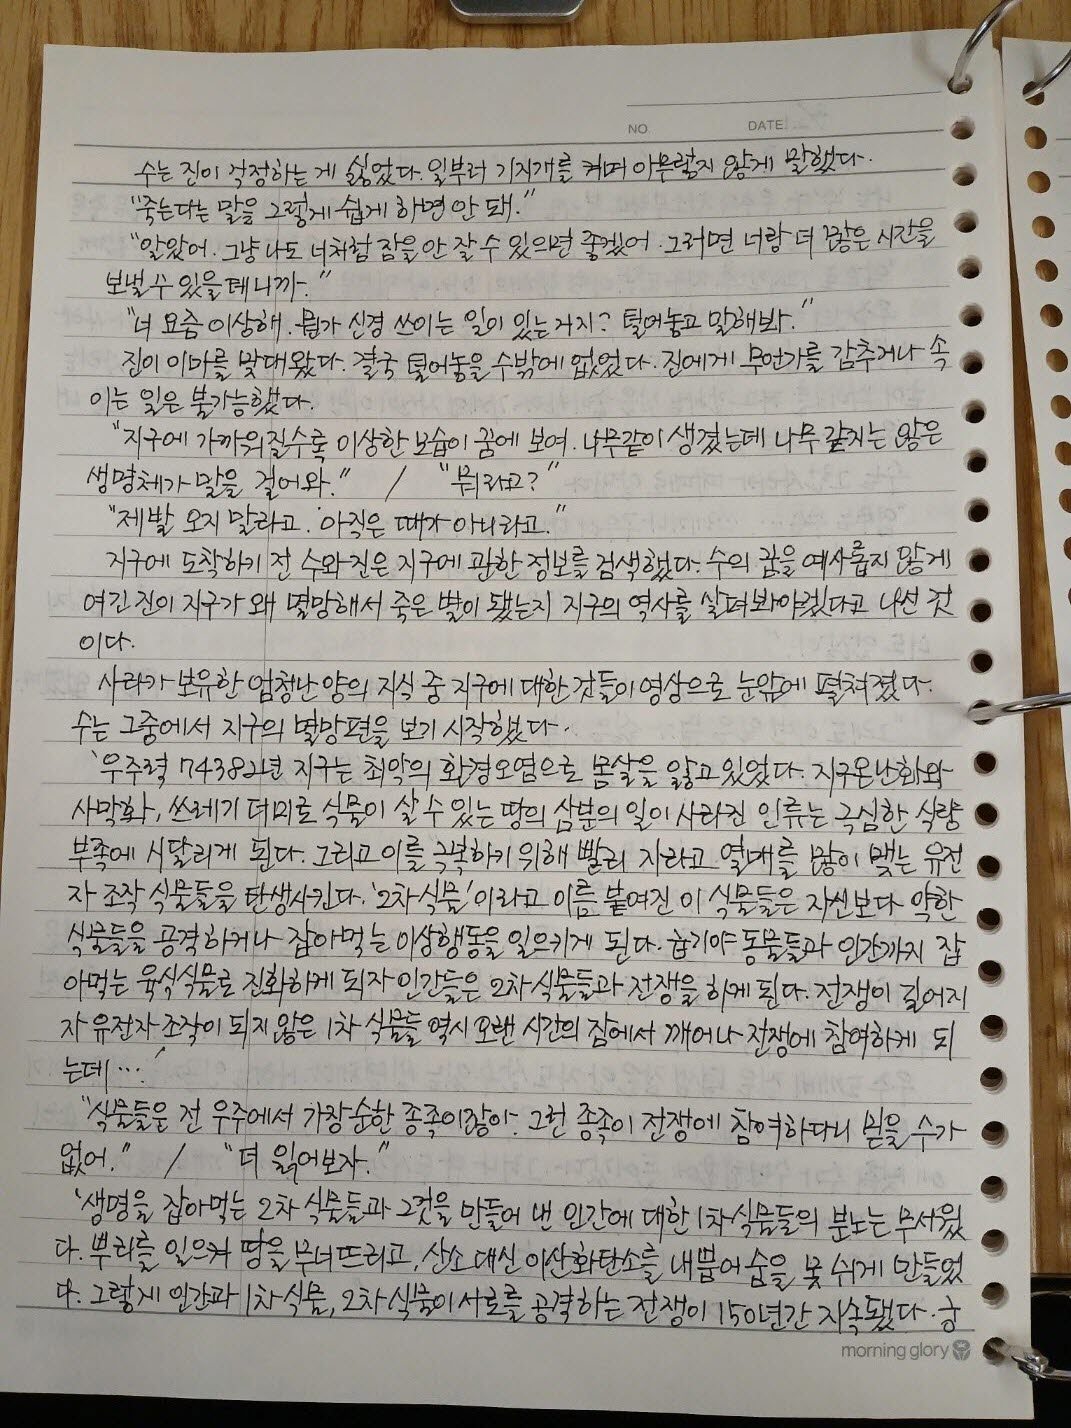 NO DATE
수는 진이 걱정하는 게 싫었다. 일부러 기지개를 켜며 아무렇지 않게 말했다.
"죽는다는 말을 그렇게 쉽게 하면 안 돼."
"알았어. 그냥 나도 너처럼 잠을 안 잘 수 있으면 좋겠어. 그러면 너랑 더 많은 시간을
보낼 수 있을 테니까."
"너 요즘 이상해. 뭔가 신경 쓰이는 일이 있는 거지? 털어놓고 말해봐."
진이 이마를 맞대왔다. 결국 털어놓을 수밖에 없었다. 진에게 무언가를 감추거나 속
이는 일은 불가능했다.
"지구에 가까워질수록 이상한 모습이 꿈에 보여. 나무같이 생겼는데 나무 같지는 않은
생명체가 말을 걸어와." / "뭐라고?"
"제발 오지 말라고. 아직은 때가 아니라고."
지구에 도착하기 전 수와 진은 지구에 관한 정보를 검색했다. 수의 꿈을 예사롭지 않게
여긴 진이 지구가 왜 멸망해서 죽은 별이 됐는지 지구의 역사를 살펴봐야겠다고 나선 것
이다.
사라가 보유한 엄청난 양의 지식 중 지구에 대한 것들이 영상으로 눈앞에 펼쳐졌다.
수는 그중에서 지구의 멸망편을 보기 시작했다.
'우주력 74382년 지구는 최악의 환경오염으로 몸살을 앓고 있었다. 지구온난화와
사막화, 쓰레기 더미로 식물이 살 수 있는 땅의 삼분의 일이 사라진 인류는 극심한 식량
부족에 시달리게 된다. 그리고 이를 극복하기 위해 빨리 자라고 열매를 많이 맺는 유전
자 조작 식물들을 탄생시킨다. '2차 식물'이라고 이름 붙여진 이 식물들은 자신보다 약한
식물들을 공격하거나 잡아먹는 이상행동을 일으키게 된다. 급기야 동물들과 인간까지 잡
아먹는 육식식물로 진화하게 되자 인간들은 2차 식물들과 전쟁을 하게 된다. 전쟁이 길어지
자 유전자 조작이 되지 않은 1차 식물들 역시 오랜 시간의 잠에서 깨어나 전쟁에 참여하게 되
는데…'
"식물들은 전 우주에서 가장 순한 종족이잖아. 그런 종족이 전쟁에 참여하다니 믿을 수가
없어." / "더 읽어보자."
'생명을 잡아먹는 2차 식물들과 그것을 만들어 낸 인간에 대한 1차 식물들의 분노는 무서웠
다. 뿌리를 일으켜 땅을 무너뜨리고, 산소 대신 이산화탄소를 내뿜어 숨을 못 쉬게 만들었
다. 그렇게 인간과 1차 식물, 2차 식물이 서로를 공격하는 전쟁이 150년간 지속됐다. 항
morning glory